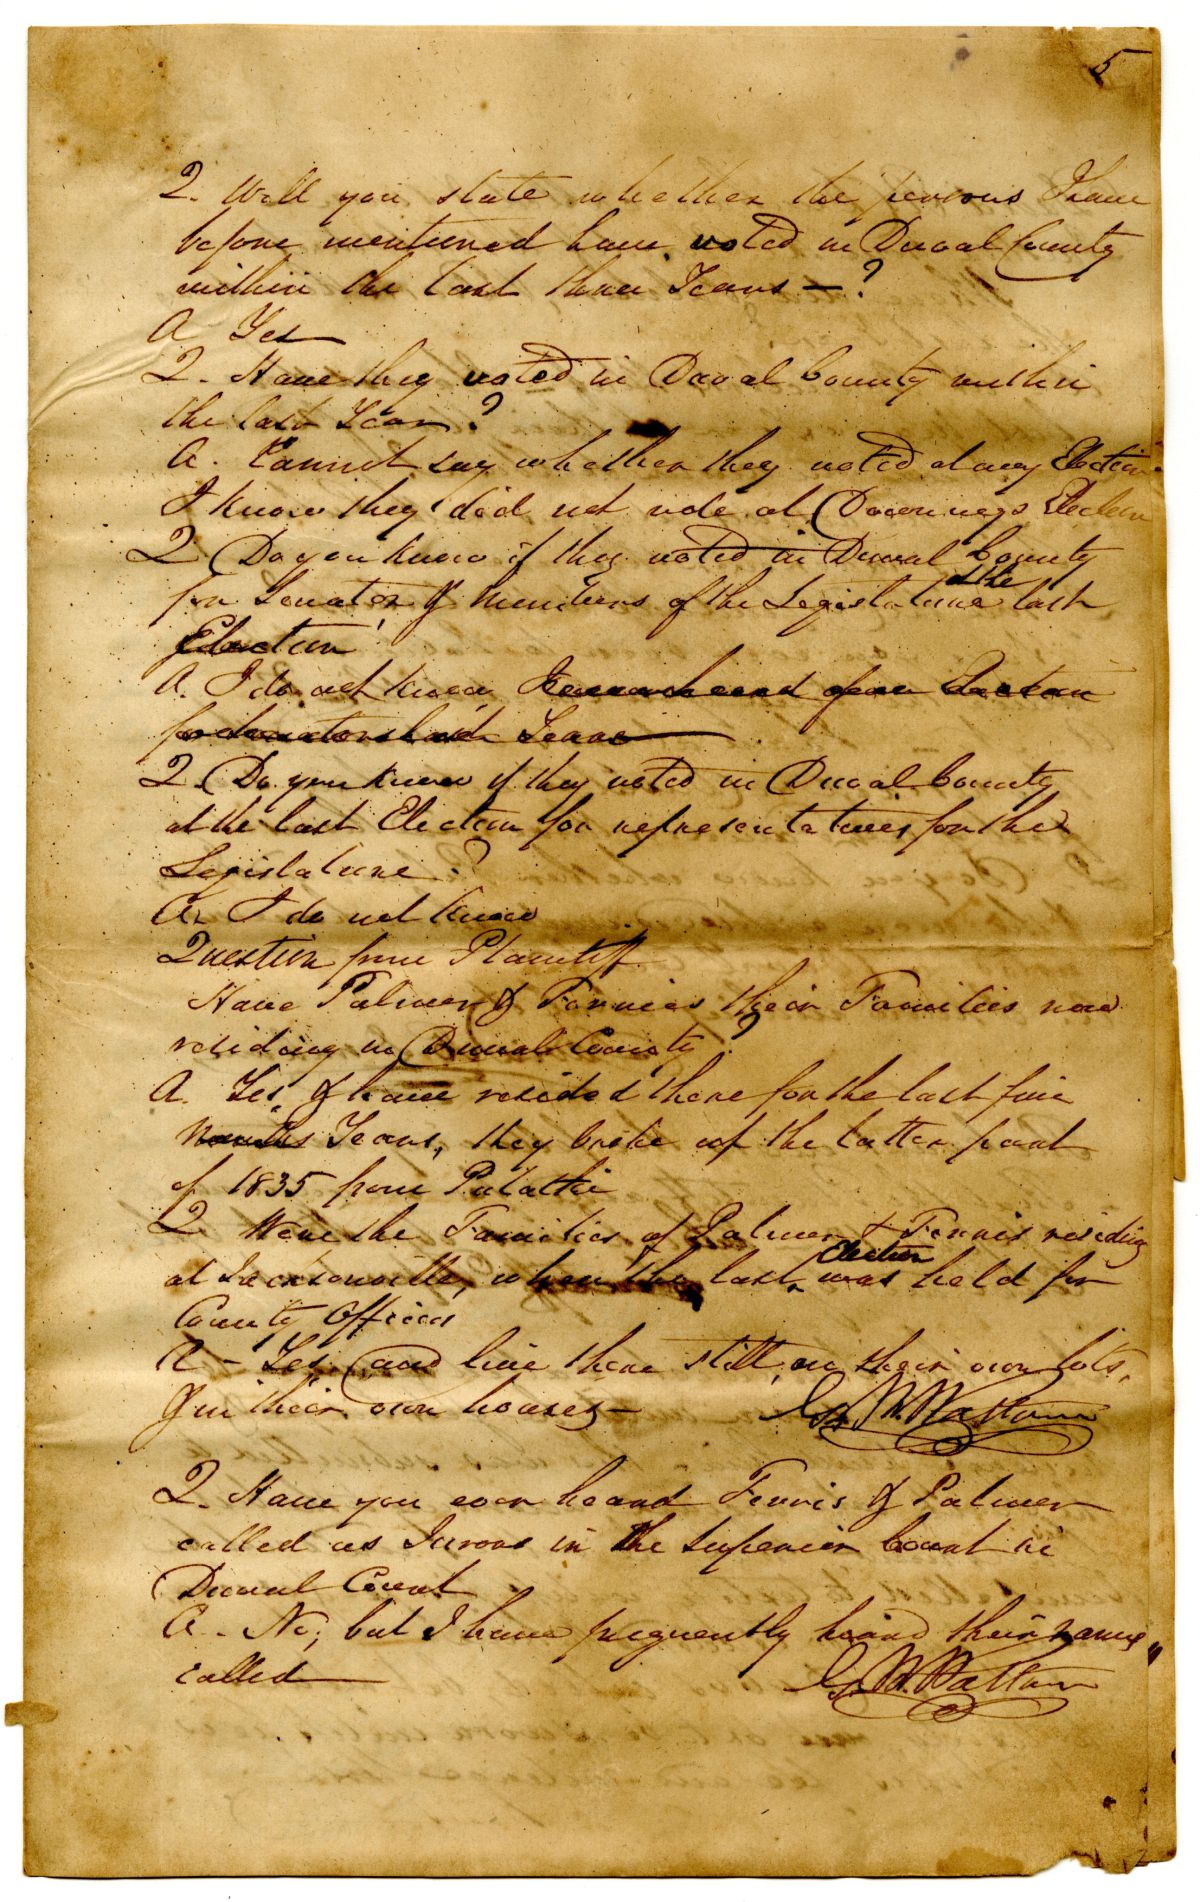 5
Q. Will you state whether the persons I have
before mentioned have voted in Duval County
within the last three Years — ?
A Yes
Q. Have they voted in Duval County within
the last Year?
A. Cannot say whether they voted at any Election
I know they did not vote at Downings Election
Q Do you know if they voted in Duval County
for Senator & members of the Legislature the last
Election
A. I do not know
for Senators last Years
Q Do you know if they voted in Duval County
at the last Election for representatives for the
Legislature?
A. I do not know
Question from Plaintiff
Have Palmer & Ferries their Families now
residing in Duval County?
A. Yes, & have resided there for the last five
Months Years, they broke up the latter part
of 1835 from Palatkie
Q Were the Families of Palmer & Ferris residing
at Jacksonville, when the last Election was held for
County Officers
A – Yes, and live there still, on their own lots,
& in their own houses —
Q. Have you ever heard Ferris & Palmer
called as Jurors in the Superior Court in
Duval Court
A. No, but I have frequently heard their names
called